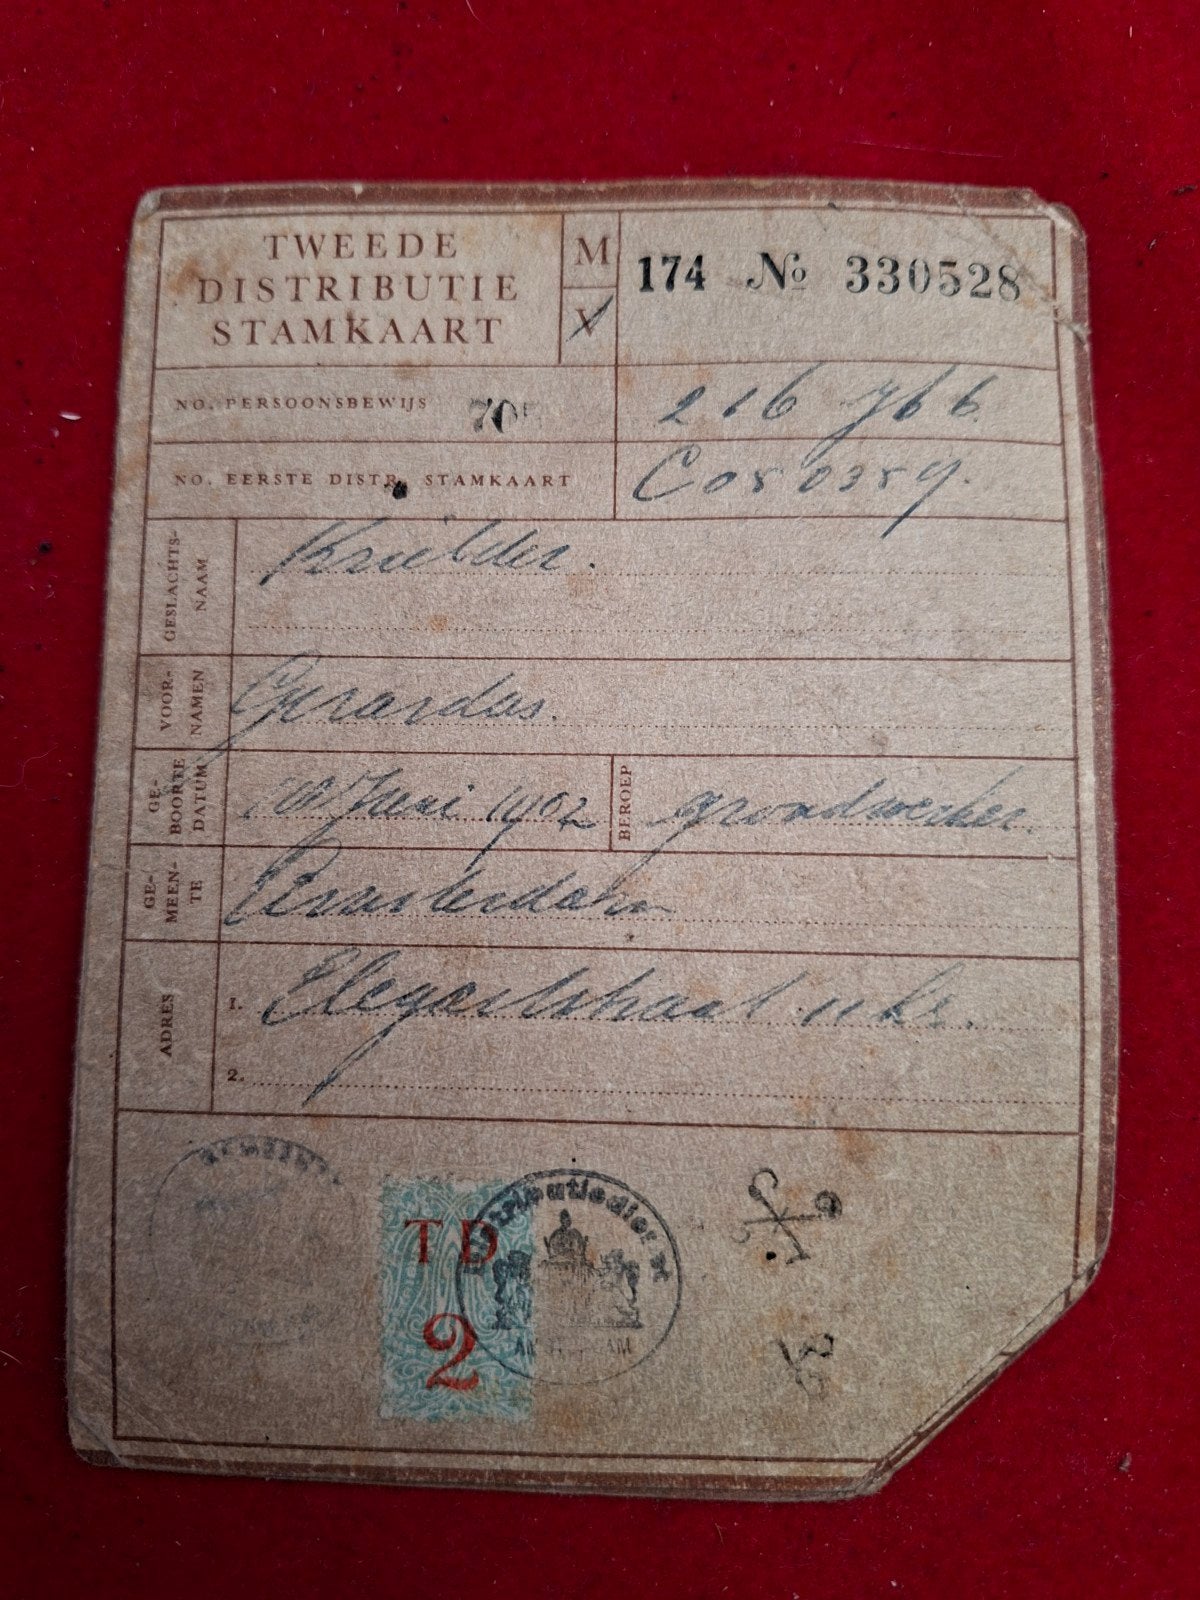 TWEEDE
DISTRIBUTIE
STAMKAART
M
V
174 № 330528
NO. PERSOONSBEWIJS 705
216766
NO. EERSTE DISTR. STAMKAART
C050359.
GESLACHTS-
NAAM
VOOR-
NAMEN
Gerardus.
GE-
BOORTE
DATUM
Juni 1902
BEROEP
grondwerker.
GE-
MEEN-
TE
Amsterdam
ADRES
1.
2.
GEMEENTE
TD
2
Distributiedienst
AMSTERDAM